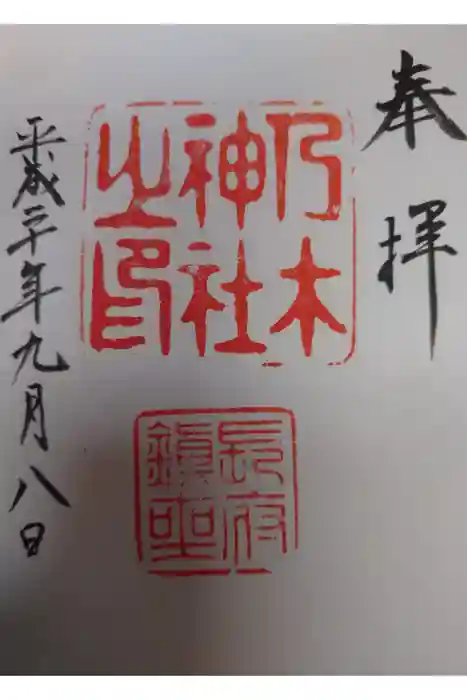 奉拝
乃木
神社
之印
長府
鎮坐
平成三十年九月八日